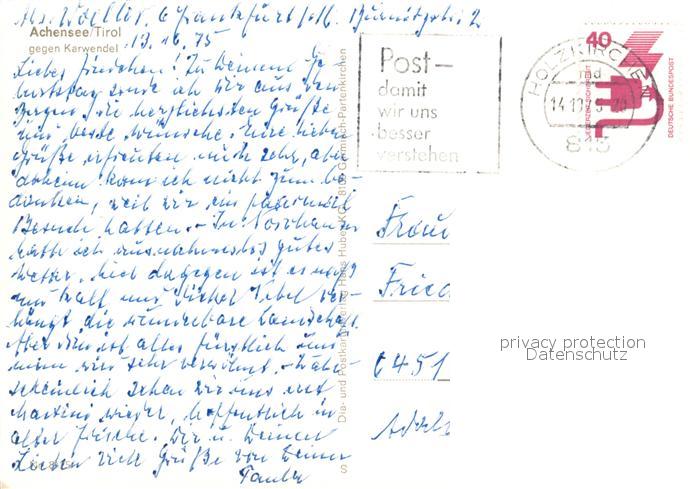 Achensee/Tirol
gegen Karwendel
13.10.75
6 Frankfurt/M.
Liebes Friedchen! Zu Deinem Ge-
burtstag sende ich Dir aus den
Bergen die herzlichsten Grüße
und beste Wünsche. Deine lieben
Grüße erfreuten mich sehr, aber
daheim kam ich nicht zum Be-
danken, weil wir ein paarmal
Besuch hatten. - In
hatte ich ausnahmslos gutes
Wetter, hier dagegen ist es naß
und kalt und dichter Nebel ver-
hängt die wunderbare Landschaft.
Aber sonst ist alles fürstlich und
wir sehr verwöhnt. - Wahr-
scheinlich sehen wir uns erst
Martini wieder, hoffentlich in
alter Frische. Dir u. Deinen
Lieben viele Grüße von Deiner
Paula
Dia- und Postkartenverlag Hans Huber KG, 8100 Garmisch-Partenkirchen
S
Post-
damit
wir uns
besser
verstehen
HOLZKIRCHEN
md
815
40
DEUTSCHE BUNDESPOST
Frau
Fried
6451
privacy protection
Datenschutz